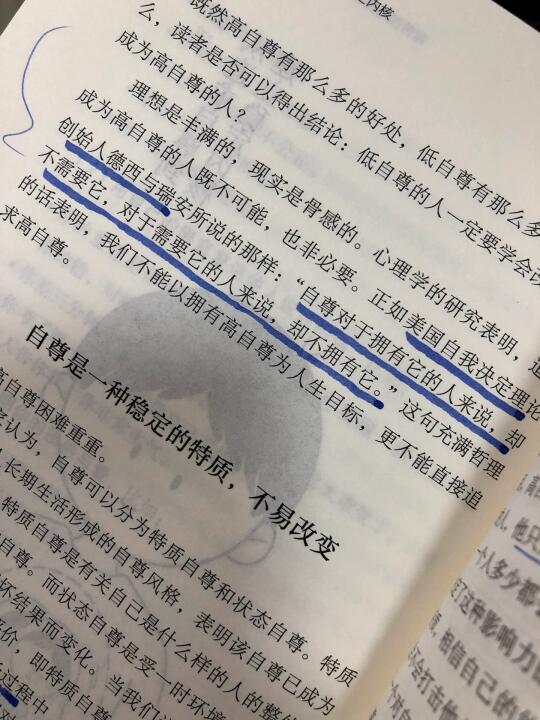 内核
既然高自尊有那么多的好处，低自尊有那么多
么，读者是否可以得出结论：低自尊的人一定要学会改
成为高自尊的人？
理想是丰满的，现实是骨感的。心理学的研究表明，追
成为高自尊的人既不可能，也非必要。正如美国自我决定理论
创始人德西与瑞安所说的那样：“自尊对于拥有它的人来说，却
不需要它，对于需要它的人来说，却不拥有它。”这句充满哲理
的话表明，我们不能以拥有高自尊为人生目标，更不能直接追
求高自尊。
自尊是一种稳定的特质，不易改变
高自尊困难重重。
认为，自尊可以分为特质自尊和状态自尊。特质
长期生活形成的自尊风格，表明该自尊已成为
特质自尊是有关自己是什么样的人的整体
自尊。而状态自尊是受一时环境
坏结果而变化。当我们
价，即特质自尊
过程中
他只
个人多少都
这种影响力
，相信自己的
会打击他